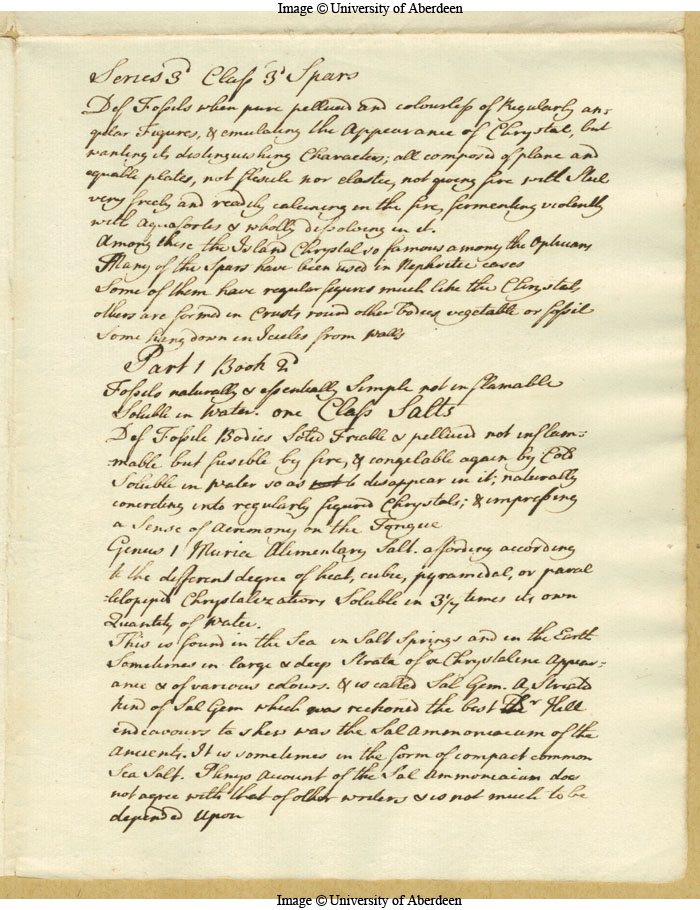 Image © University of Aberdeen
Series 3d Class 3d Spars
Def Fossils when pure pellucid and colourless of Regularly an-
gular Figures, & emulating the Appearance of Chrystal, but
wanting its distinguishing Characters; all composed of plane and
equable plates, not flexile nor elastic, not giving fire with Steel
very freely and readily calcining in the fire, fermenting violently
with aquafortes & wholly dissolving in it.
Among these the Island Chrystal so famous among the Opticians
Many of the Spars have been used in Nephritic cases
Some of them have regular figures much like the Chrystals
others are formed in Crusts round other bodies vegetable or fossil
Some hang down in Icicles from walls
Part 1 Book 2d
Fossils naturally & essentially Simple not inflamable
Soluble in Water. one Class Salts
Def Fossile Bodies Solid Friable & pellucid not inflam-
mable but fusible by fire, & congelable again by Cold
Soluble in water so as to disappear in it; naturally
concreting into regularly figured Chrystals; & impressing
a Sense of Acrimony on the Tongue
Genus 1 Muriæ Alimentary Salt. affording according
to the different degree of heat, cubic, pyramidal, or paral
lelopiped Chrystalizations Soluble in 3 1/7 times its own
Quantity of Water.
This is found in the Sea in Salt Springs and in the Earth
Sometimes in large & deep Strata of a Chrystaline Appear-
ance & of various colours. & is called Sal Gem. A Striated
kind of Sal Gem which was reckoned the best Dr Hill
endeavours to shew was the Sal Ammoniacum of the
Ancients. It is sometimes in the form of compact common
Sea Salt. Plinys Account of the Sal Ammoniacum does
not agree with that of other writers & is not much to be
depended Upon
Image © University of Aberdeen